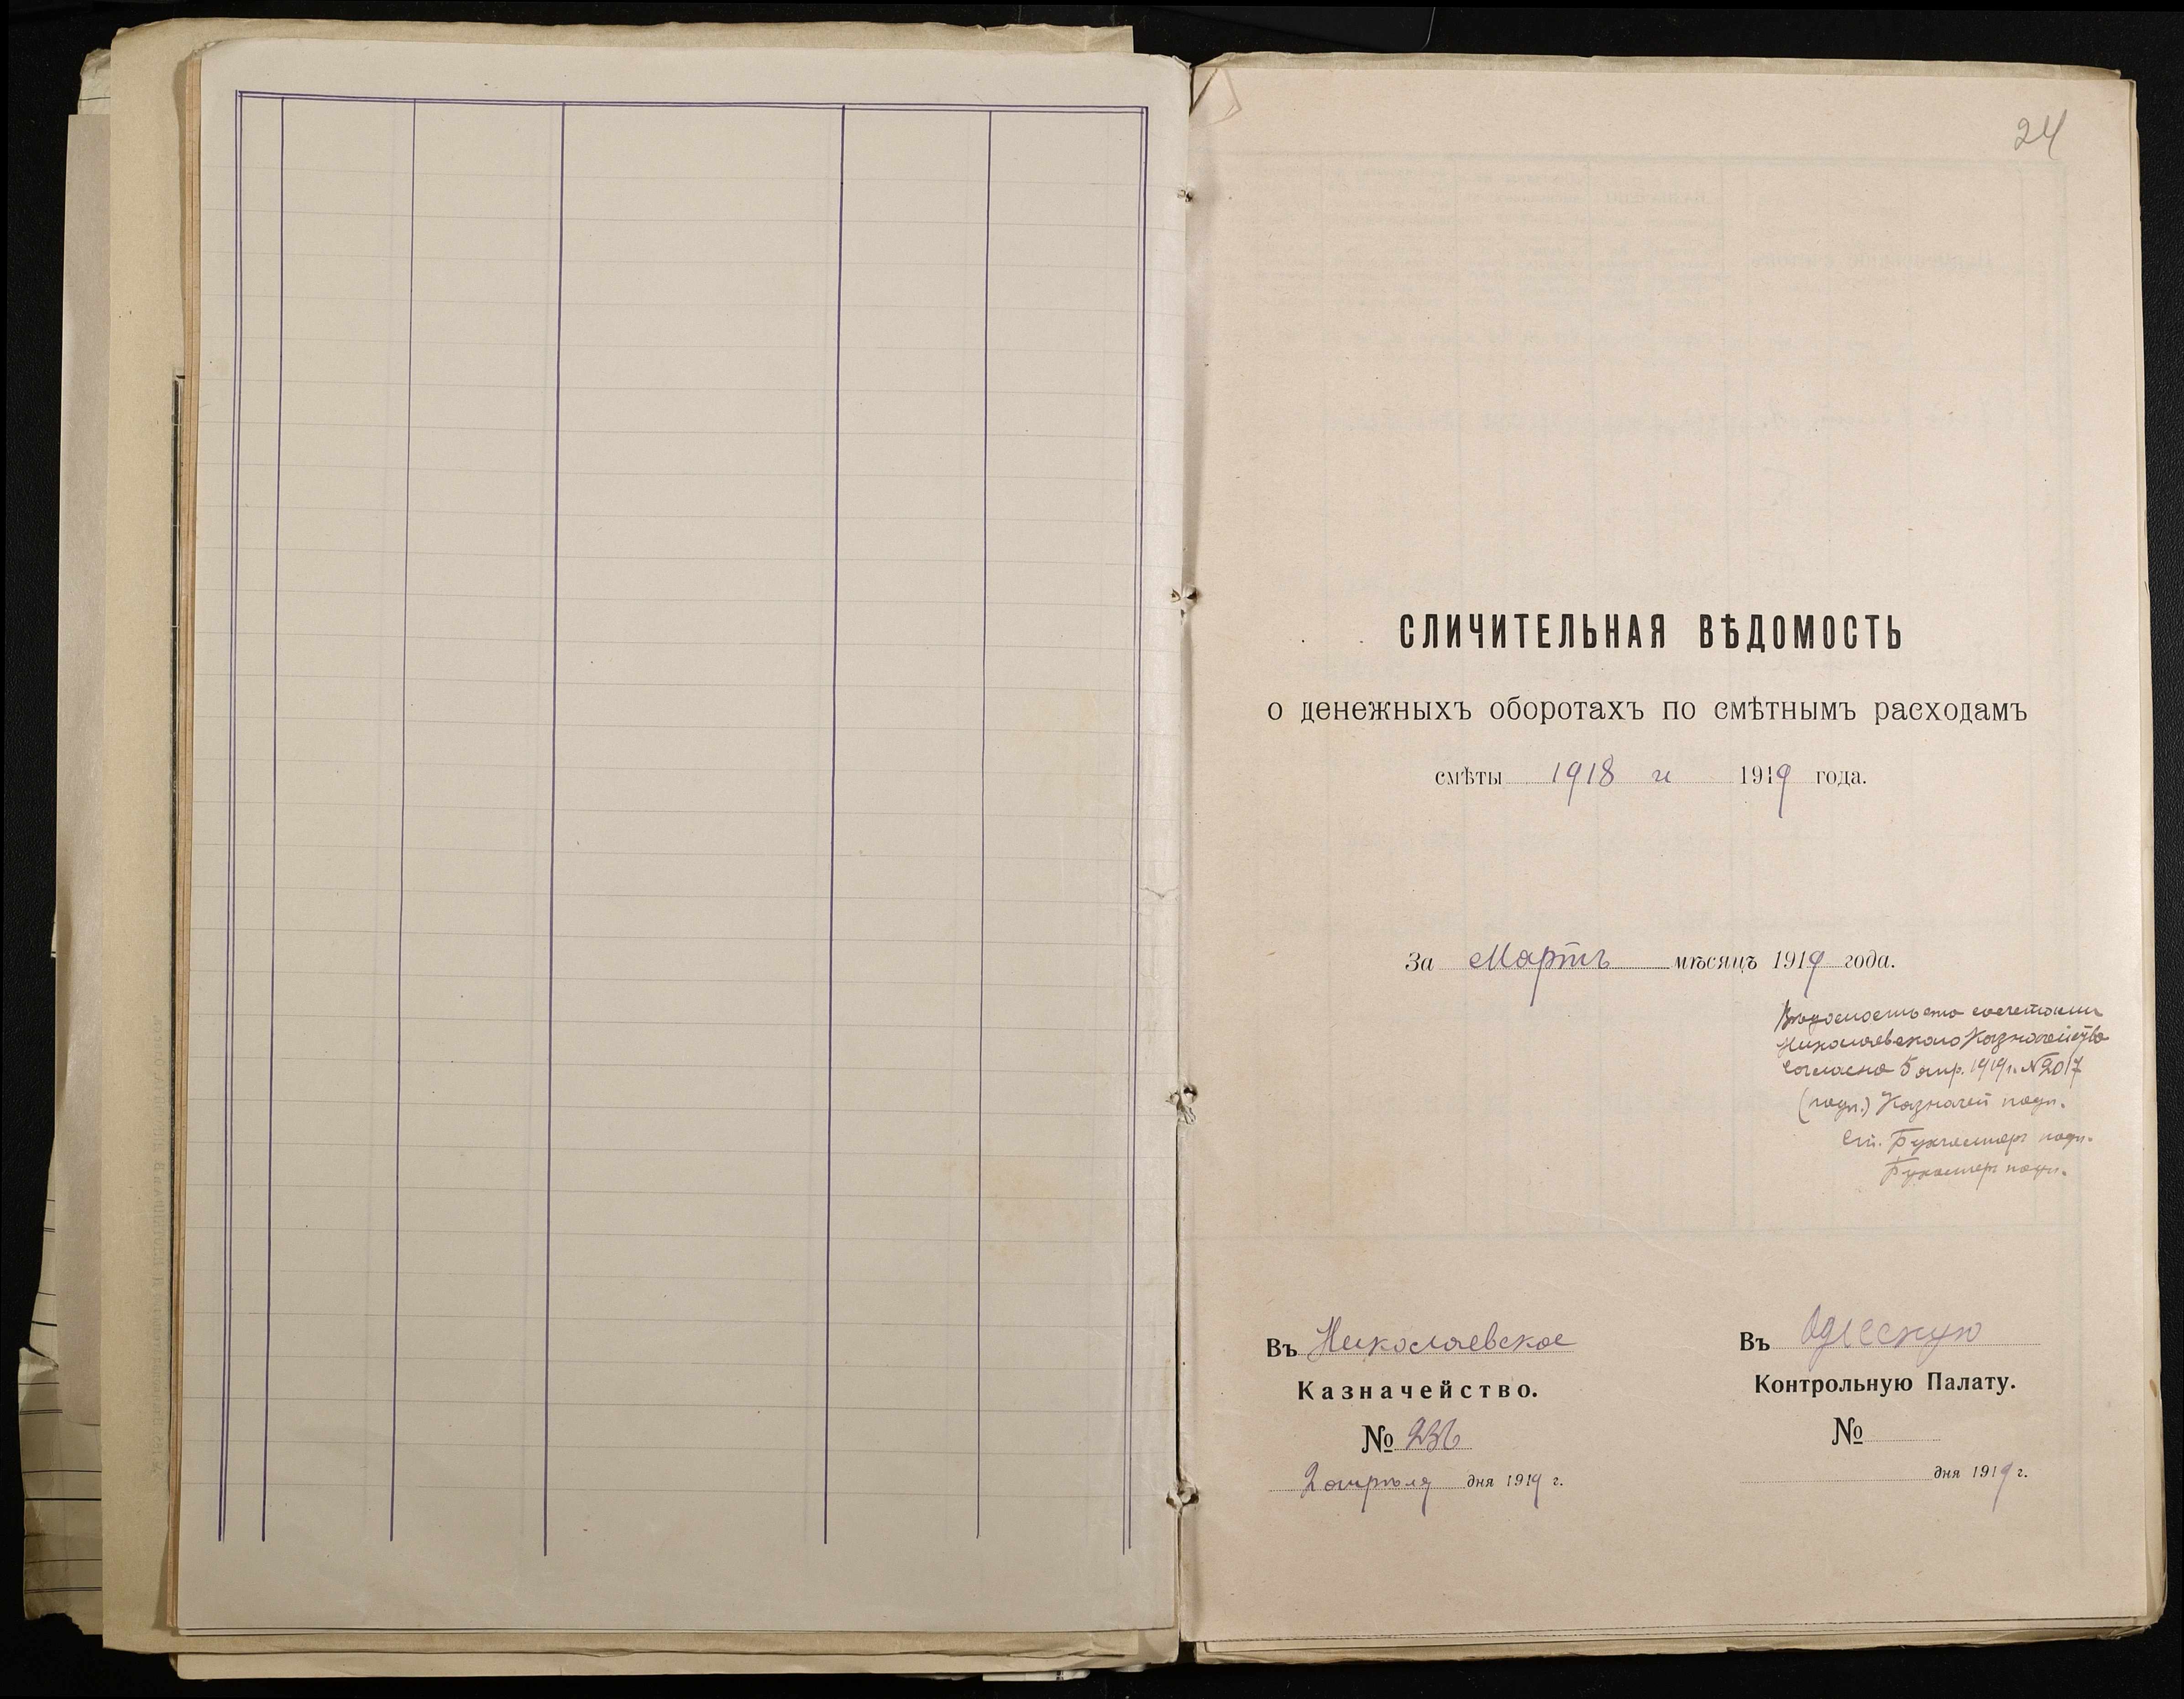 24
СЛИЧИТЕЛЬНАЯ ВѢДОМОСТЬ
о денежныхъ оборотахъ по смѣтнымъ расходамъ
смѣты 1918 и 1919 года.
За Мартъ мѣсяцъ 1919 года.
Вѣдомость эта со счетами
Николаевскаго Казначейства
согласна 5 апр. 1919 г. № 2017
(подп.) Казначей подп.
Ст. Бухгалтеръ подп.
Бухгалтеръ подп.
Въ Николаевское
Казначейство.
№ 236
2 апрѣля дня 1919 г.
Въ Одесскую
Контрольную Палату.
№
дня 1919 г.